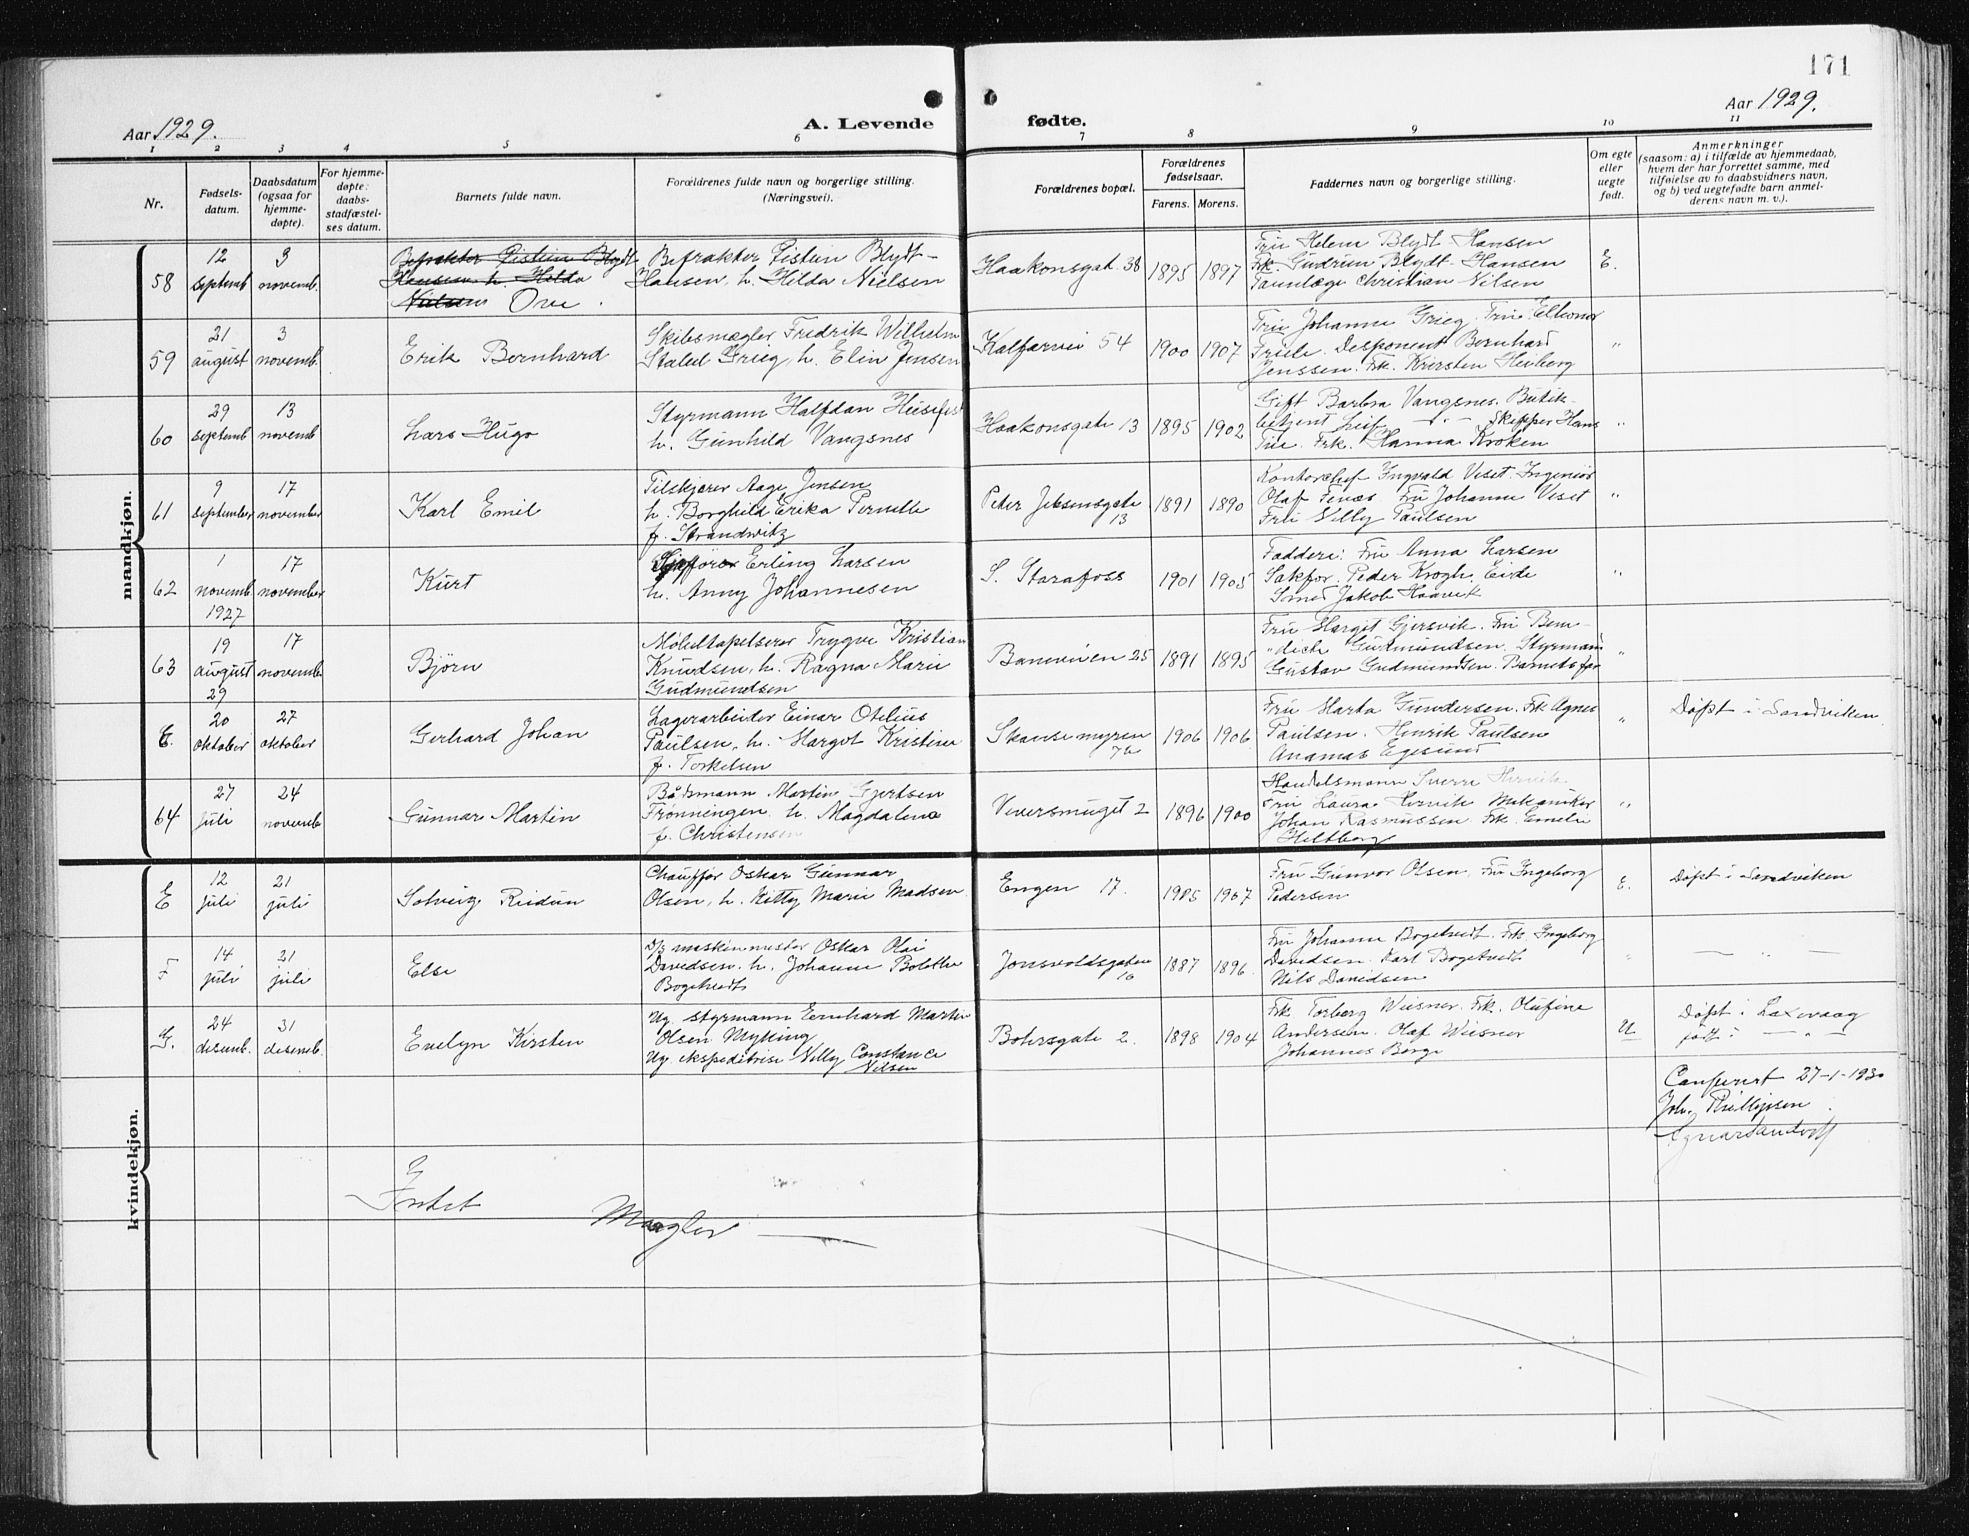 171
Aar 1929.
A. Levende fødte.
Aar 1929.
1 2 3 4 5 6 7 8 9 10 11
Nr.
Fødsels-
datum.
Daabsdatum
(ogsaa for
hjemme-
døpte).
For hjemme-
døpte:
daabs-
stadfæstel-
ses datum.
Barnets fulde navn.
Forældrenes fulde navn og borgerlige stilling.
(Næringsvei).
Forældrenes bopæl.
Forældrenes
fødselsaar.
Farens. Morens.
Faddernes navn og borgerlige stilling.
Om egte
eller
uegte
født.
Anmerkninger
(saasom: a) i tilfælde av hjemmedaab,
hvem der har forrettet samme, med
tilføielse av to daabsvidners navn,
og b) ved uegtefødte barn anmel-
derens navn m. v.).
mandkjøn.
58
12
septemb.
3
novemb.
Befrakter Eistein Blydt
Hansen h. Hilda
Nielsens Ove
Befrakter Eistein Blydt-
Hansen, h. Hilda Nielsen
Haakonsgat. 38
1895 1897
Fru Helene Blydt Hansen
Frk. Gudrun Blydt-Hansen
Tannlæge Christian Nilsen
E.
59
21
august
3
novemb.
Erik Bernhard
Skibsmægler Fredrik Wilhelm
Grieg, h. Elin Jensen
Kalfarvei 54
1900 1907
Fru Johanne Grieg. Fru
Friele. Desponent Bernhard
Jenssen. Frk. Kirsten Heiberg
"
60
29
septemb
13
novemb
Lars Hugo
Styrmann Halfdan
h. Gunhild Vangsnes
Haakonsgate 13
1895 1902
Gift Barbra Vangsnes. Butik-
betjent Leif - " - Skipper Hans
Frk. Hanna Kroken
"
61
9
september
17
november
Karl Emil
Tilskjærer Aage Jensen
h. Borghild Erika Pernelle
f. Strandwitz
Peter Jebsensgate
13
1891 1890
Kontorchef Ingvald Viset. Ingeniør
Olaf Fru Johanne Viset
Fru Nelly Paulsen
"
62
1
novemb.
1927
17
november
Kurt
Erling Larsen
h. Anny Johannesen
S. Starafoss
1901 1905
Faddere: Fru Anna Larsen
Sakfør. Peder Krogh.
Smed Jakob Haavik
"
63
19
august
29
17
novemb.
Bjørn
Møbeltapetserer Trygve Kristian
Knudsen, h. Ragna Marie
Gudmundsen
Baneveien 25
1891 1895
Fru Margit Gjersvik. Fru Bene-
" dicte Gudmundsen. Styrmann
Gustav Gudmundsen. Barnets far
"
E.
20
oktober
27
oktober
Gerhard Johan
Lagerarbeider Einar Otelius
Paulsen, h. Margot Kristine
f. Torkelsen
Skansemyren
7b
1906 1906
Fru Marta Gundersen. Frk Agnes
Paulsen. Henrik Paulsen
Ananias Egesund
"
Døpt i Sandviken
64
27
juli
24
novemb
Gunnar Martin
Båtsmann Martin Gjertsen
Frønningen h. Magdalena
f. Christensen
Veversmuget 2
1896 1900
Handelsmann Sverre
Fru Laura Mekaniker
Johan Rasmussen Frk. Emelie
Heltborg
"
kvindekjøn.
E
12
juli
21
juli
Solveig Reidun
Chauffør Oskar Gunnar
Olsen, h. Kitty Marie Madsen
Engen 17.
1905 1907
Fru Gunvor Olsen, Fru Ingeborg
Pedersen
E.
Døpt i Sandviken
F
14
juli
21
juli
Else
D/s maskinmester Oskar Olai
Davidsen. h. Johanne Bolette
Bogetvedt
Jonsvoldsgaten
16
1887 1896
Fru Johanne Bogetvedt. Frk. Ingeborg
Davidsen. Karl Bogetvedt
Nils Davidsen
"
— " —
G.
24
desemb.
31
desemb.
Evelyn Kirsten
Ug. styrmann Bernhard Martin
Olsen Myking
Ug ekspeditrise Nelly Constance
Nilsen
Bohrsgate 2.
1898 1904
Frk Torborg Wiesner. Frk. Olufine
Andersen. Olaf Wiesner
Johannes Borge
U
Døpt i Laxevaag
født i — " —
Conferert 27-1-1930
Joh. Phillipsen
Intet Mangler